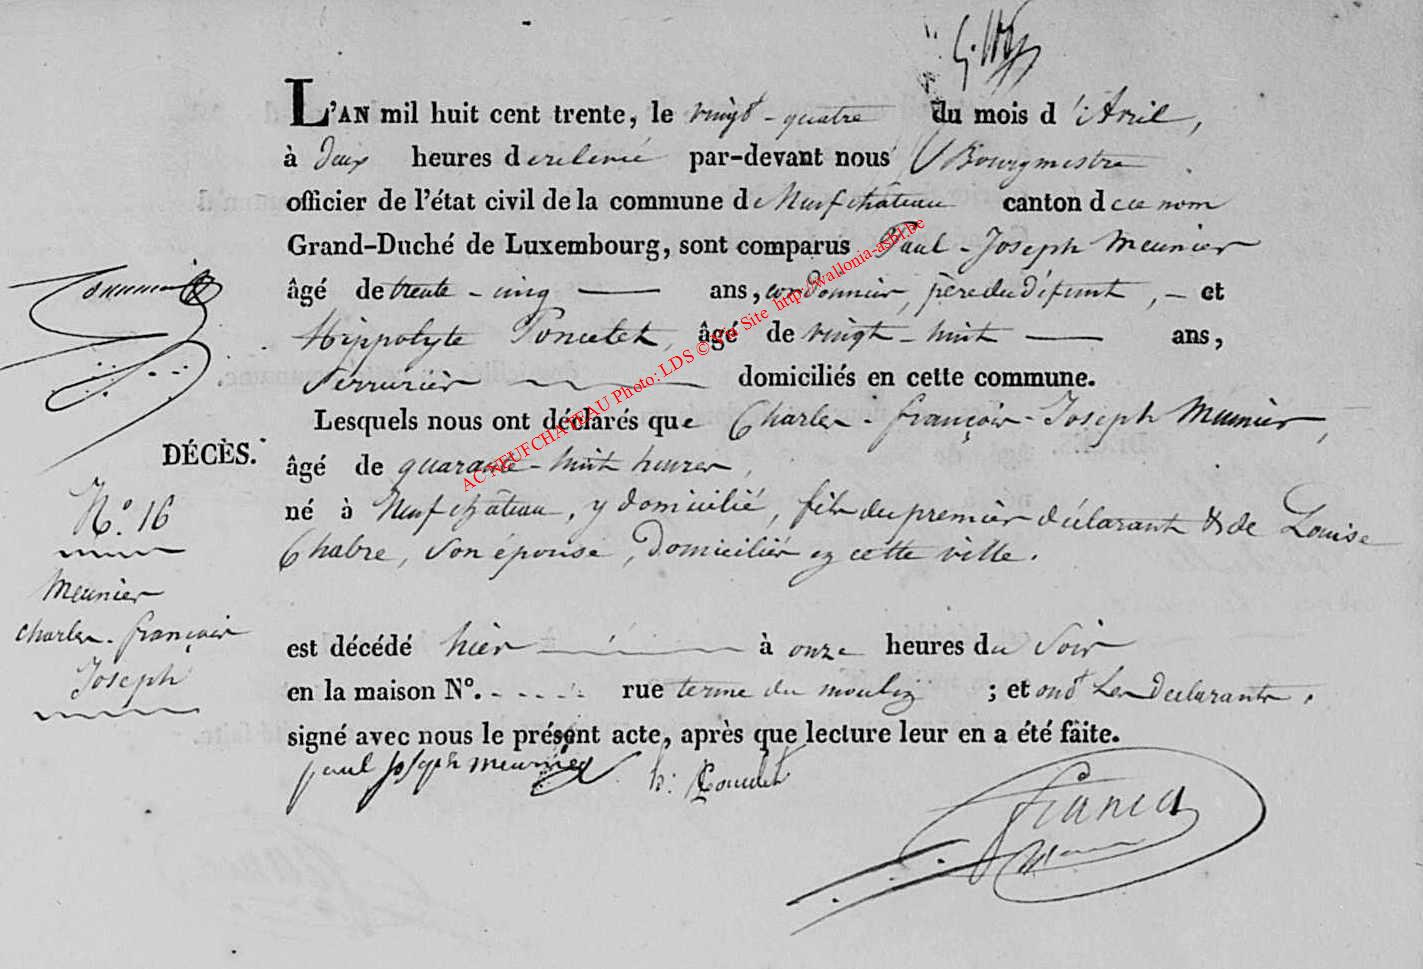 L'AN mil huit cent trente, le vingt-quatre du mois d'Avril,
à deux heures de relevée par-devant nous Bourgmestre
officier de l'état civil de la commune de Neufchâteau canton de ce nom
Grand-Duché de Luxembourg, sont comparus Paul-Joseph Meunier
âgé de trente-cinq ans, cordonnier, père du défunt, et
Hippolyte Poncelet, âgé de vingt-huit ans,
Serrurier domiciliés en cette commune.
Lesquels nous ont déclarés que Charles-François-Joseph Meunier,
DÉCÈS.
âgé de quarante-huit heures,
né à Neufchâteau, y domicilié, fils du premier déclarant & de Louise
Chabre, son épouse, domiciliés en cette ville.
N.° 16
Meunier
Charles-françois
Joseph
est décédé hier à onze heures du soir
en la maison N°. rue terme du moulin ; et ont les déclarants,
signé avec nous le présent acte, après que lecture leur en a été faite.
paul joseph meunier h: Poncelet
AC NEUFCHATEAU Photo: LDS © Via Site http://wallonia-asbl.be